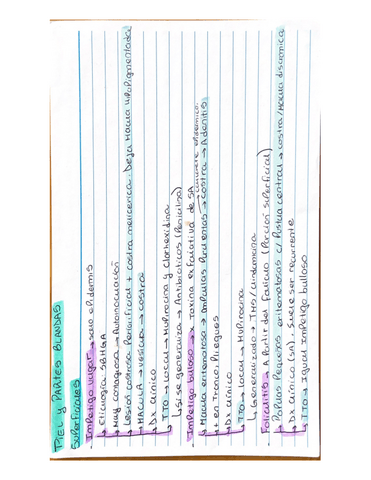 PIEL y PARTES BLANDAS
Superficiales
Impetigo vulgar → solo epidermis
→ Etiologia SBHGA
→ Muy contagiosa → Autoinoculacion
→ Lesión costrosa Periorificial + costra melicerica. Deja Macula hipopigmentada
→ MACULA → vesicula → costra
→ Dx clinico
→ TTO → Local → Mupirocina y Clorhexidina
↳ Si se generaliza → Antibioticos (Penicilina)
Impetigo bulloso → Toxina exfoliativa de SA
→ Macula eritematosa → ampollas → costra → Adenitis
→ + en Tronco, Pliegues
→ Dx clinico
→ TTO → Local → Mupirocina
↳ Generalizado → TMS/Clindamicina
Foliculitis → A partir del foliculo (Porcion superficial)
→ Papulas Pequeñas eritematosas c/ Pústula central → costra/Macula discromica
→ Dx clinico (SA). Suele ser recurrente
→ TTO → Igual Impetigo bulloso